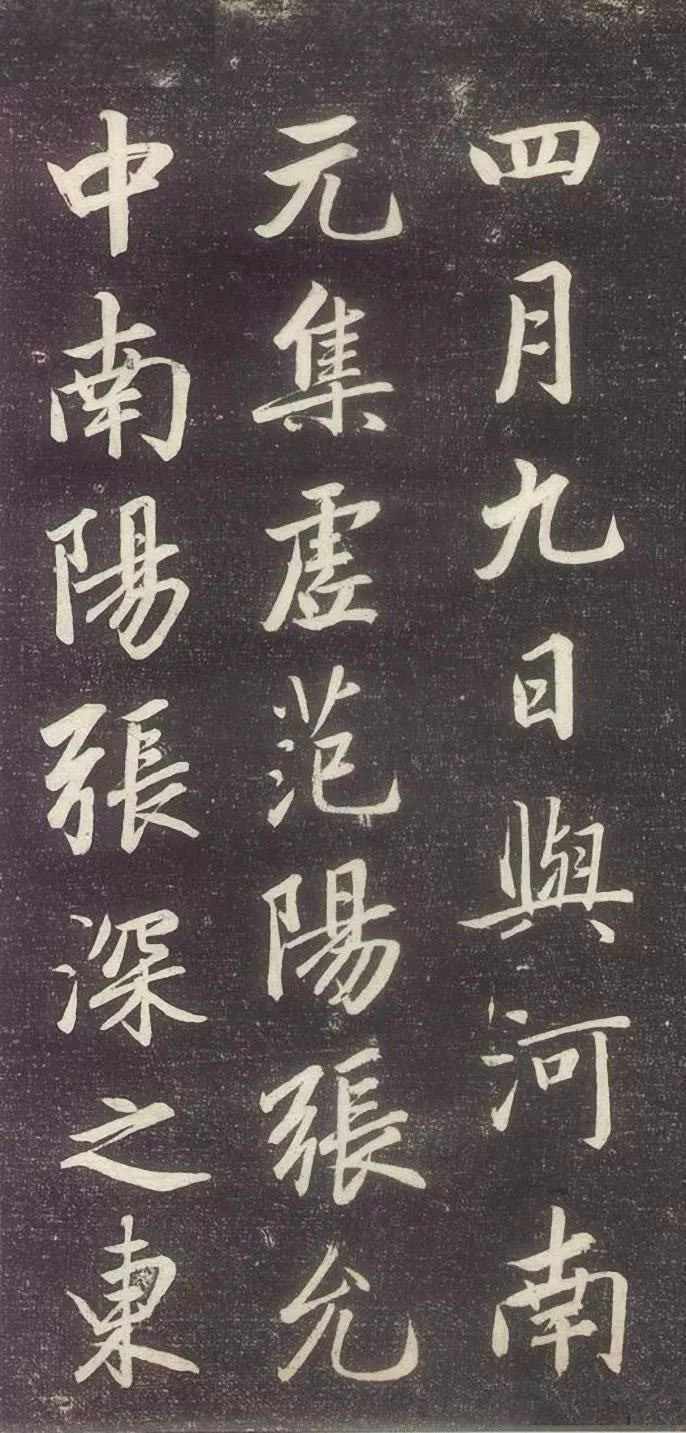 四月九日與河南
元集虛范陽張允
中南陽張深之東